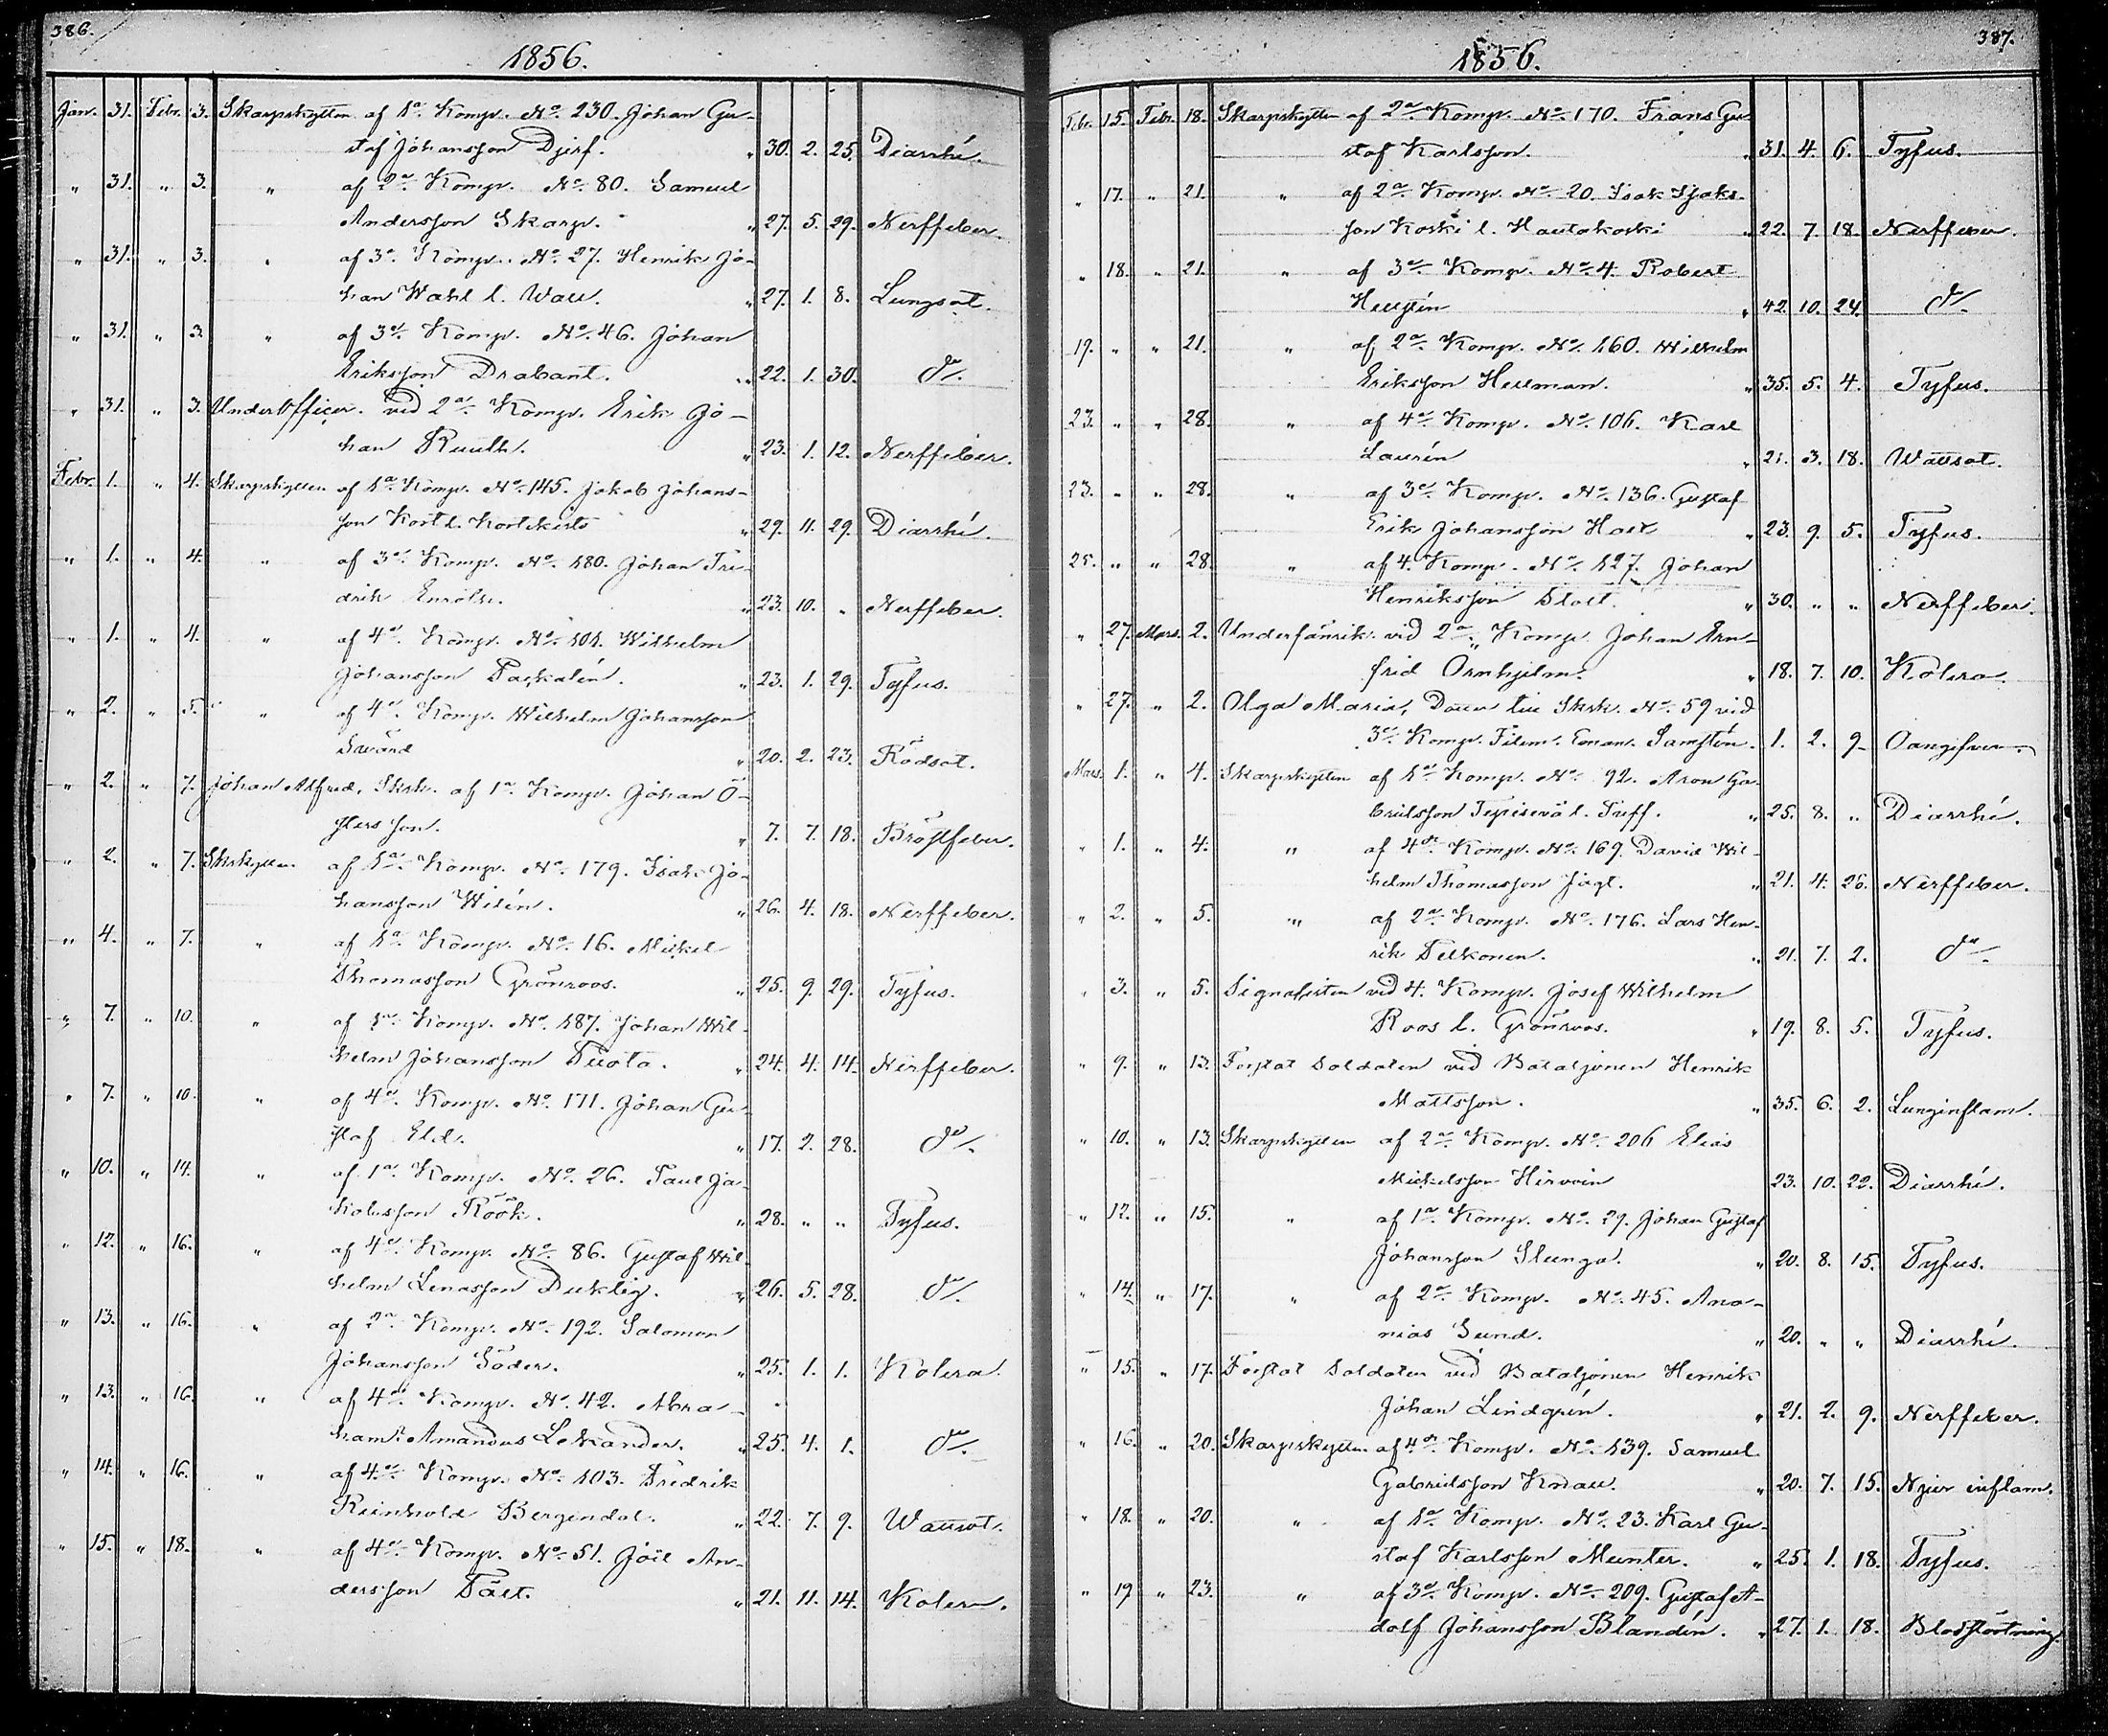 386.
1856.
Jan. 31. Febr. 3. Skarpskytten af 1a Komp. No. 230. Johan Gu-
staf Johansson Djerf. " 30. 2. 25. Diarrhé.
" 31. " 3. " af 2a Komp. No. 80. Samuel
Andersson Skarp. " 27. 5. 29. Nerffeber.
" 31. " 3. " af 3e Komp. No. 27. Henrik Jo-
han Wahl l. Wall. " 27. 1. 8. Lungsot.
" 31. " 3. " af 3e Komp. No. 46. Johan
Eriksson Drabant. " 22. 1. 30. do.
" 31. " 3. Underofficer vid 2a Komp. Erik Jo-
han Ruuth. " 23. 1. 12. Nerffeber.
Febr. 1. " 4. Skarpskytten af 1a Komp. No. 145. Jakob Johans-
son Kort l. " 29. 11. 29. Diarrhé.
" 1. " 4. " af 3e Komp. No. 180. Johan Fre-
drik Enroth. " 23. 10. " Nerffeber.
" 1. " 4. " af 4e Komp. No. 101. Wilhelm
Johansson Packalén. " 23. 1. 29. Tyfus.
" 2. " 5. " af 4e Komp. Wilhelm Johansson
Swärd " 20. 2. 23. Rödsot.
" 2. " 7. Johan Alfred, Skrk. af 1a Komp. Johan Ö-
sterson. " 7. 7. 18. Bröstfeber.
" 2. " 7. Skrskytten af 1a Komp. No. 179. Isak Jo-
hansson Wilén. " 26. 4. 18. Nerffeber.
" 4. " 7. " af 1a Komp. No. 16. Mickel
Thomasson Grönroos. " 25. 9. 29. Tyfus.
" 7. " 10. " af 1a Komp. No. 187. Johan Wil-
helm Johansson Tuota. " 24. 4. 14. Nerffeber.
" 7. " 10. " af 4e Komp. No. 171. Johan Gu-
staf Eld. " 17. 2. 28. do.
" 10. " 14. " af 1a Komp. No. 26. Paul Ja-
kobsson Röök. " 28. " " Tyfus.
" 12. " 16. " af 4e Komp. No. 86. Gustaf Wil-
helm Lenasson Duktig. " 26. 5. 28. do.
" 13. " 16. " af 2a Komp. No. 192. Salomon
Johansson Söder. " 25. 1. 1. Kolera.
" 13. " 16. " af 4e Komp. No. 42. Abra-
ham Amandus Lekander. " 25. 4. 1. do.
" 14. " 16. " af 4e Komp. No. 103. Fredrik
Reinhold Bergendal. " 22. 7. 9. Wattsot.
" 15. " 18. " af 4e Komp. No. 51. Joel An-
dersson Tält. " 21. 11. 14. Kolera.
387.
1856.
Febr. 15. Febr. 18. Skarpskytten af 2a Komp. No. 170. Frans Gu-
staf Karlsson. " 31. 4. 6. Tyfus.
" 17. " 21. " af 2a Komp. No. 20. Isak Isaks-
son Koski l. Hautakoski " 22. 7. 18. Nerffeber.
" 18. " 21. " af 3e Komp. No. 4. Robert
" 42. 10. 24. do.
19. " " 21. " af 2a Komp. No. 160. Wilhelm
Eriksson Hellman. " 35. 5. 4. Tyfus.
23. " " 28. " af 4e Komp. No. 106. Karl
Laurén " 21. 3. 18. Wattsot.
23. " " 28. " af 3e Komp. No. 136. Gustaf
Erik Johansson Hast " 23. 9. 5. Tyfus.
25. " " 28. " af 4. Komp. No. 127. Johan
Henriksson Stolt. " 30. " " Nerffeber.
" 27. Mars. 2. Underfänrik vid 2a Komp. Johan Arn-
frid Örnhjelm. " 18. 7. 10. Kolera.
" 27. " 2. Olga Maria, Dotter till Skrsk. No. 59 vid
3e Komp. Filem. Eman. Samstén. 1. 2. 9. Oangifven.
Mars. 1. " 4. Skarpskytten af 1a Komp. No. 92. Aron Ga-
brielsson l. Tuff. " 25. 8. " Diarrhé.
" 1. " 4. " af 4de Komp. No. 169. David Wil-
helm Thomasson Jägt. " 21. 4. 26. Nerffeber.
" 2. " 5. " af 2a Komp. No. 176. Lars Hen-
rik Pelkonen. " 21. 7. 2. do
" 3. " 5. Signalisten vid 4. Komp. Josef Wilhelm
Roos l. Grönroos. " 19. 8. 5. Tyfus.
" 9. " 13. Forstat Soldaten vid Bataljonen Henrik
Mattsson. " 35. 6. 2. Lunginflam.
" 10. " 13. Skarpskytten af 2a Komp. No. 206 Elias
Mickelsson Hirvoin 23. 10. 22. Diarrhé.
" 12. " 15. " af 1a Komp. No. 29. Johan Gustaf
Johansson Slunga. " 20. 8. 15. Tyfus.
" 14. " 17. " af 2a Komp. No. 45. Ana-
nias Sund. " 20. " " Diarrhé.
" 15. " 17. Forstat Soldaten vid Bataljonen Henrik
Johan Lindgrén. " 21. 2. 9. Nerffeber.
" 16. " 20. Skarpskytten af 4de Komp. No. 139. Samuel
Gabrielsson Knall. " 20. 7. 15. Njur inflam.
" 18. " 20. " af 1a Komp. No. 23. Karl Gu-
staf Karlsson Munter. " 25. 1. 18. Tyfus.
" 19 " 23. " af 3e Komp. No. 209. Gustaf A-
dolf Johansson Blandén. " 27. 1. 18. Blodstörtning.